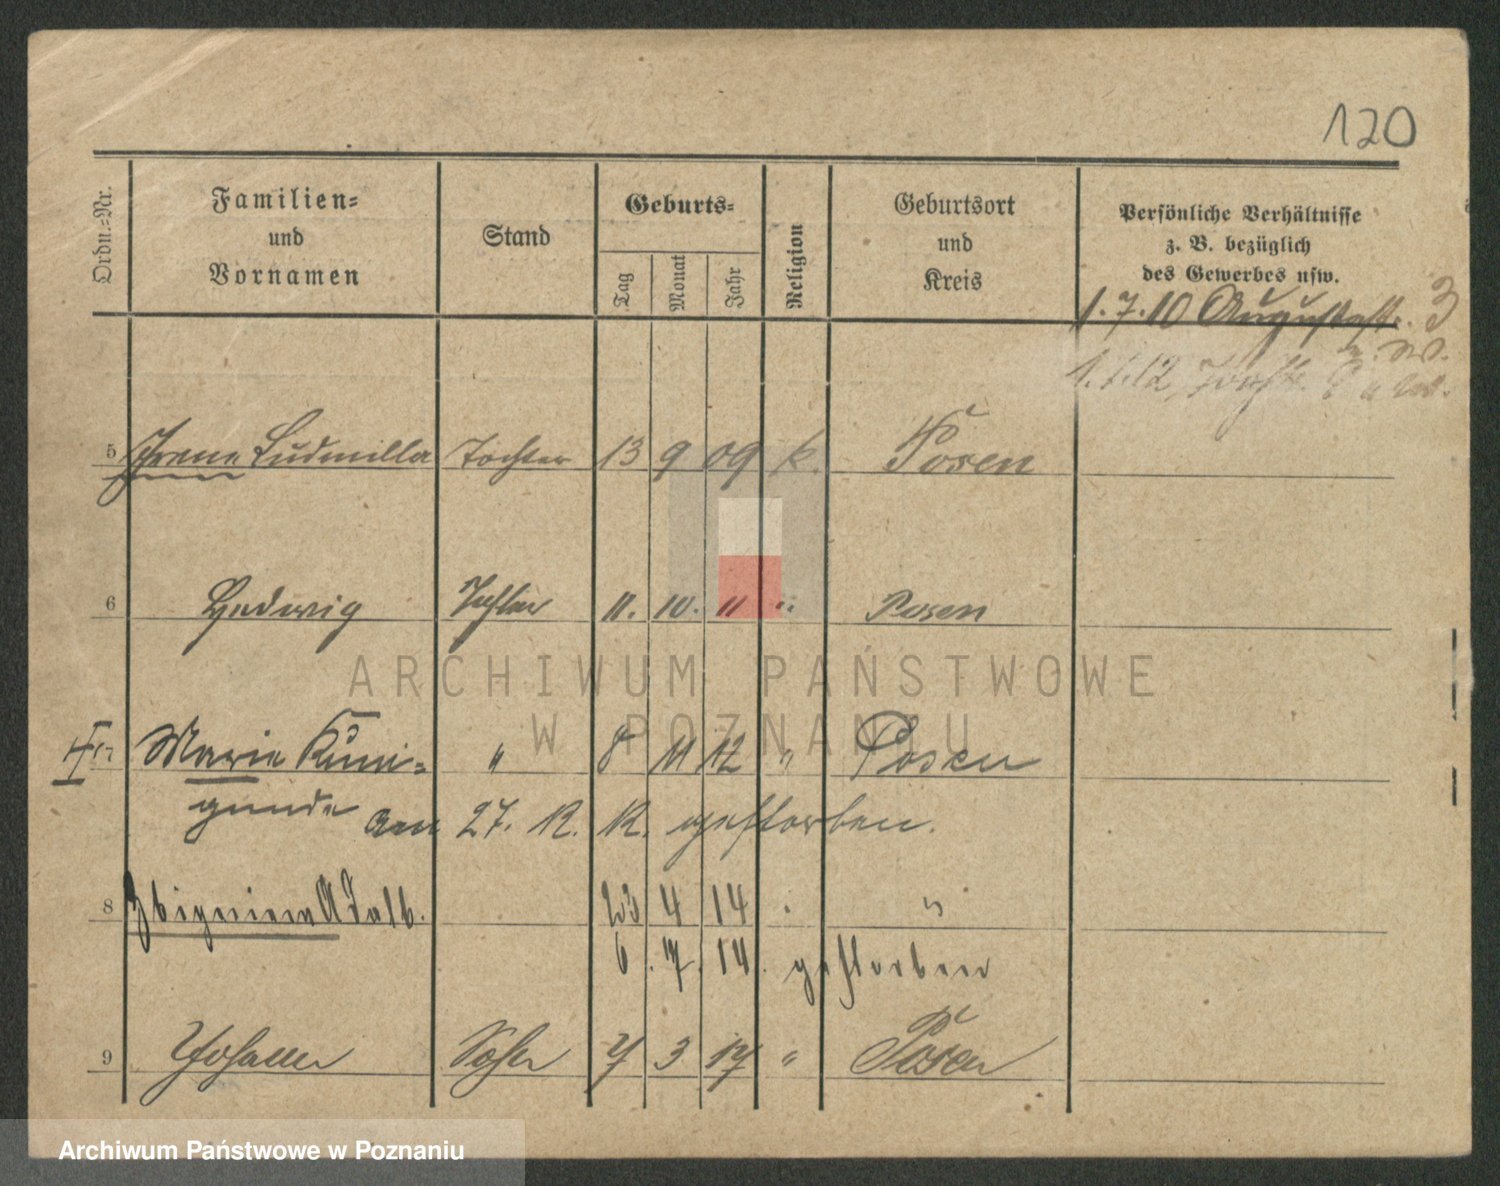 120
Ordn.-Nr.
Familien-
und
Vornamen
Stand
Geburts-
Tag
Monat
Jahr
Religion
Geburtsort
und
Kreis
Persönliche Verhältnisse
z. B. bezüglich
des Gewerbes usw.
1.7.10 Augustastr. 3
1. 12
5 Irene Ludmilla Tochter 13 9 09 k. Posen
6 Hedwig Tochter 11. 10. 11 " Posen
7 Marie Kuni- " 8 11 12 " Posen
gunde am 27. 12. 12. gestorben.
8 Zbigniew Adalb. 23 4 14 " "
6. 7. 14. gestorben
9 Johann Sohn 7 3 17 " Posen
ARCHIWUM PAŃSTWOWE
W POZNANIU
Archiwum Państwowe w Poznaniu